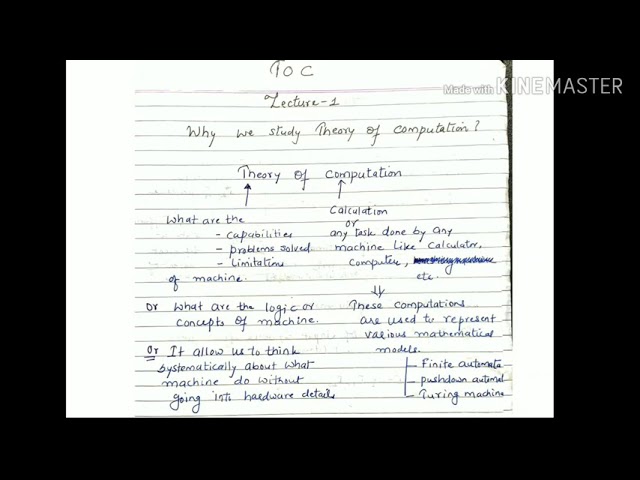 TOC
Made with KINEMASTER
Lecture-1
Why we study Theory of Computation?
Theory of Computation
What are the
- capabilities
- problems solved
- Limitations
of machine.
Or What are the logic or
concepts of machine.
Or It allow us to think
systematically about what
machine do without
going into hardware details
Calculation
or
any task done by any
machine like Calculator,
Computer,
etc.
These computations
are used to represent
various mathematical
models.
- Finite automata
- pushdown automat
- Turing machine